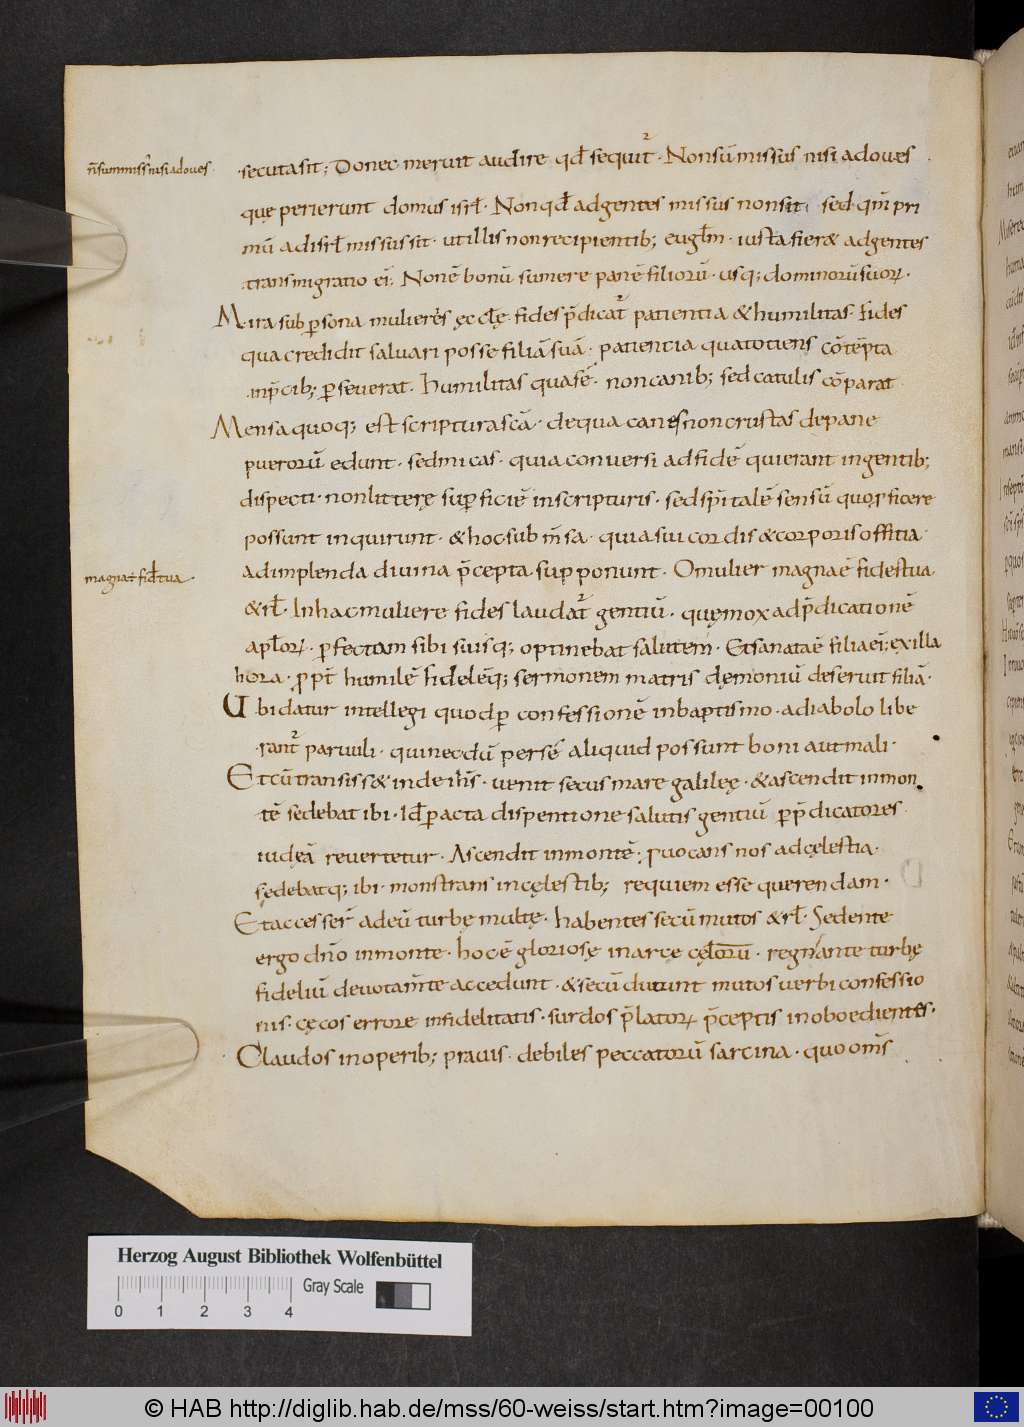 n̄ sum miss' nisi ad oues.
secuta sit; Donec meruit audire qđ sequit᷑. Non sū missus nisi ad oues
quę perierunt domus isrł. Non qđ ad gentes missus non sit. sed qm̄ pri
mū ad isrł missus sit. ut illis non recipientib; eugłm. iusta fier& ad gentes
transmigratio ei. Non ē bonū sumere panē filiorū. usq; dominorū suoꝝ.
Mira sub ꝑsona mulieris ęcclę. fides p̄dicat᷑ patientia & humilitas. fides
qua credidit saluari posse filiā suā. patientia qua totiens cōtēpta
in p̄cib; ꝑseuerat. humilitas qua se. non canib; sed catulis cōparat
Mensa quoq; est scriptura scā. de qua canes non crustas de pane
puerorū edunt. sed micas. quia conuersi ad fidē qui erant in gentib;
dispecti. non litterę suꝑficiē in scripturis. sed sp̄italē sensū quo ꝓficere
possunt inquirunt. & hoc sub m̄sa. quia sui cordis & corporis offitia.
magna ē fid' tua.
adimplenda diuina p̄cepta supponunt. O mulier magna ē fides tua
& rł. In hac muliere fides laudat᷑ gentiū. quę mox ad p̄dicationē
apłoꝝ. ꝑfectam sibi suisq; optinebat salutem. Et sanata ē filia ei; ex illa
hora. ꝓpt̄ humilē fidelēq; sermonem matris dęmoniū deseruit filiā.
Ubi datur intellegi quod ꝑ confessionē in baptismo. a diabolo libe
rant᷑ paruuli. qui necdū per se aliquid possunt boni aut mali.
Et cū transiss& inde ih̄s. uenit secus mare galilęę. & ascendit in mon
tē sedebat ibi. Id ꝑacta dispentione salutis gentiū ꝑ p̄dicatores
iudęā reuertetur. Ascendit in montē. ꝓuocans nos ad cęlestia.
sędebatq; ibi. monstrans in cęlestib; requiem esse querendam.
Et accesser̄ ad eū turbę multę. habentes secū mutos & rł. Sedente
ergo dn̄o in monte. hoc ē gloriosę in arce cęlorū. regnante turbę
fideliū deuotam̄te accedunt. & secū ducunt mutos uerbi confessio
nis. cęcos errore infidelitatis. surdos p̄latoꝝ p̄ceptis inoboedientes.
Claudos in operib; prauis. debiles peccatorū sarcina. quo om̄s
Herzog August Bibliothek Wolfenbüttel
Gray Scale
0 1 2 3 4
© HAB http://diglib.hab.de/mss/60-weiss/start.htm?image=00100